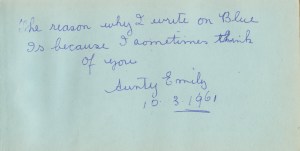 The reason why I write on Blue
Is because I sometimes think
of you
Aunty Emily
10.3.1961